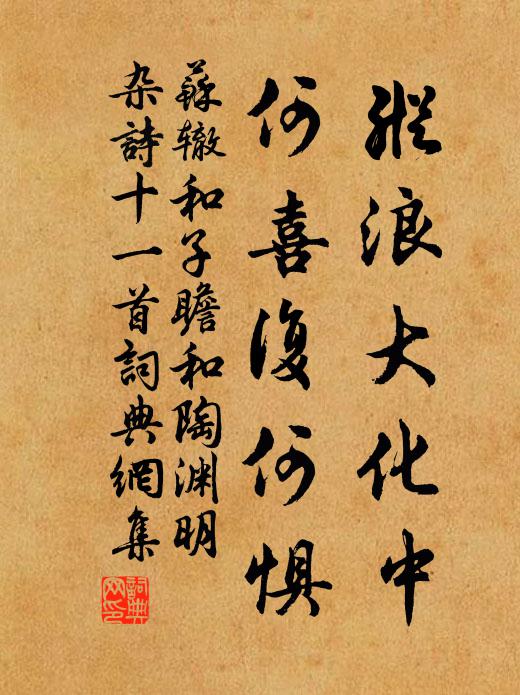 縱浪大化中
何喜復何懼
蘇辙和子瞻和陶渊明
杂詩十一首詞典網集
詞典
网印